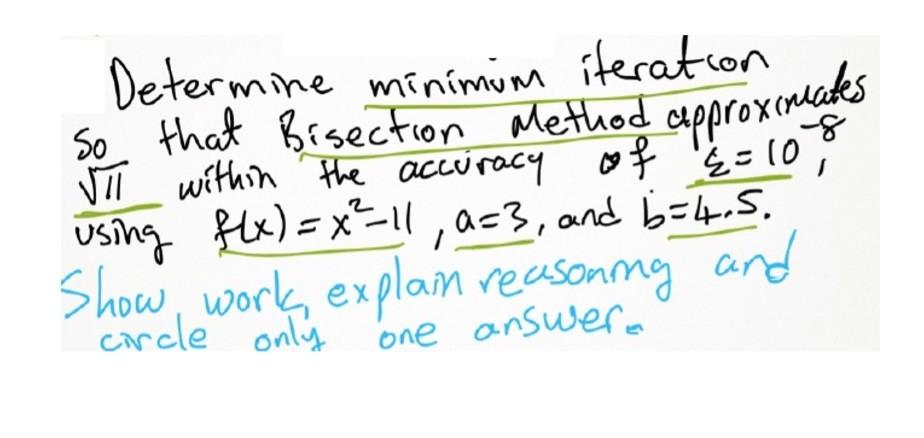 Determine minimum iteration
so that Bisection Method approximates
√11 within the accuracy of ε=10⁻⁸,
using f(x)=x²-11, a=3, and b=4.5.
Show work, explain reasoning and
circle only one answer.